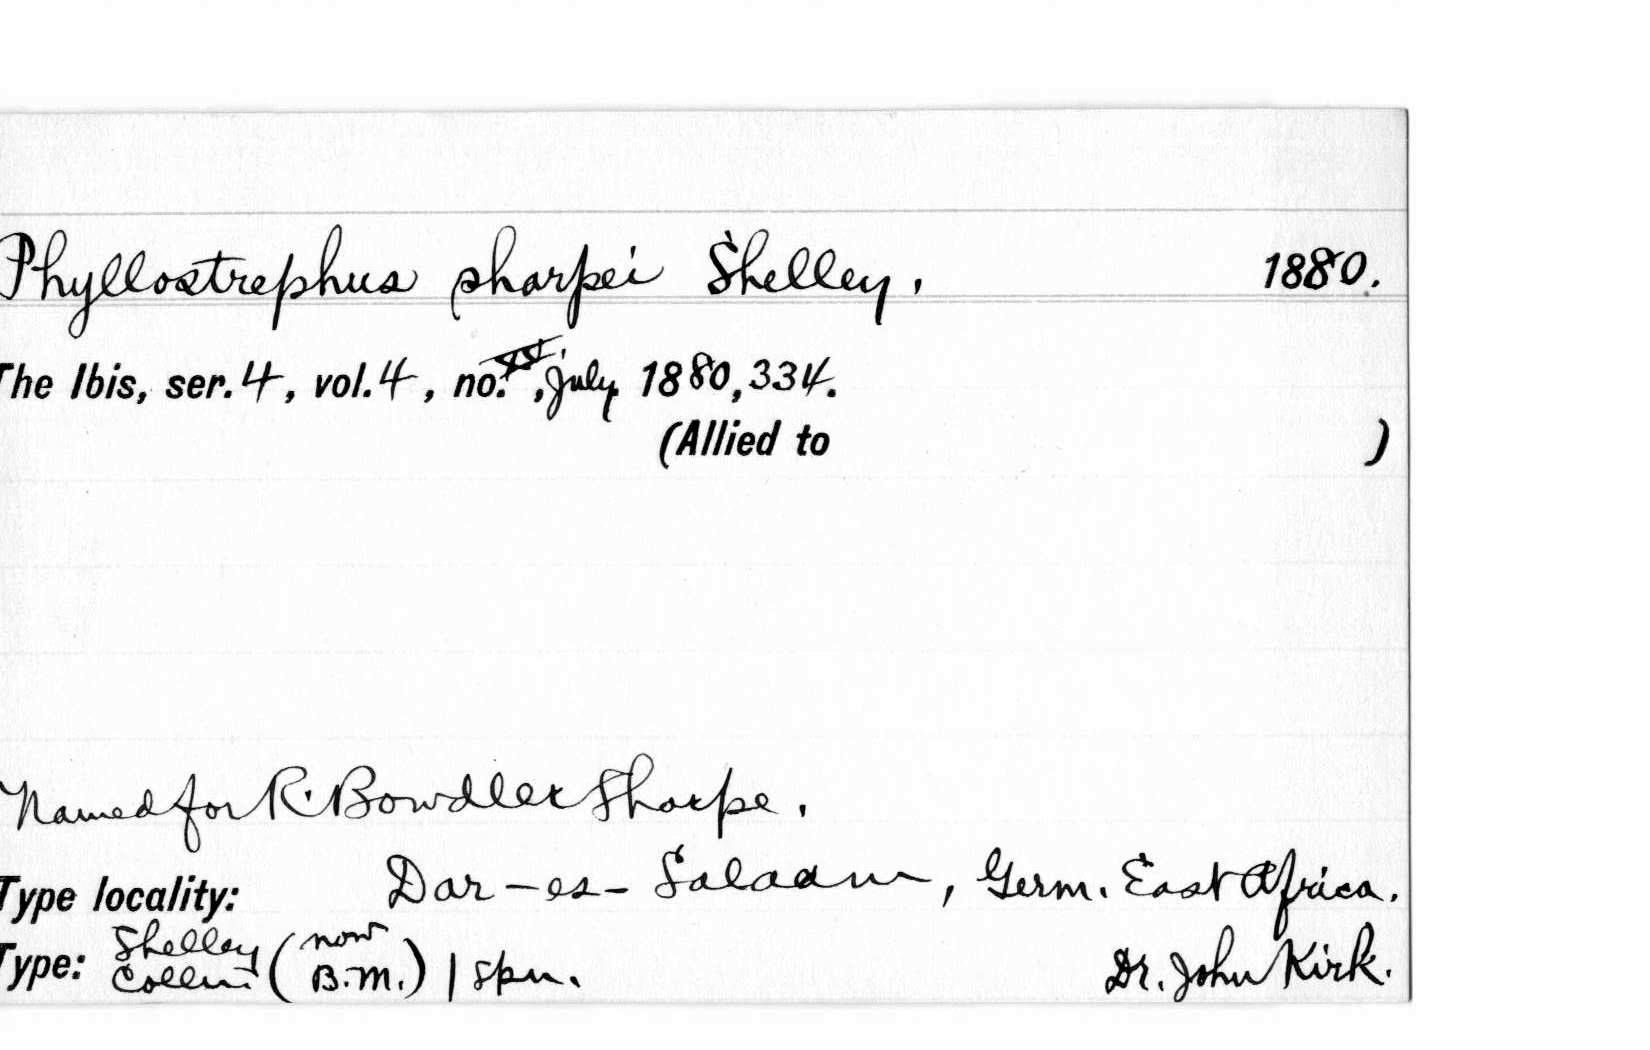 Phyllostrephus sharpei Shelley. 1880.
The Ibis, ser. 4, vol. 4, no. , July 1880, 334.
(Allied to )
Named for R. Bowdler Sharpe.
Type locality: Dar-es-Salaam, Germ. East Africa.
Type: Shelley Colln. (now B.M.) 1 spm. Dr. John Kirk.